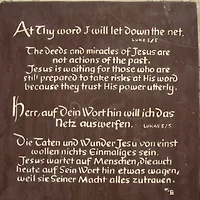 At Thy word I will let down the net.
LUKE 5/5
The deeds and miracles of Jesus are
not actions of the past.
Jesus is waiting for those who are
still prepared to take risks at His word
because they trust His power utterly.
Herr, auf dein Wort hin will ich das
Netz auswerfen. LUKAS 5/5
Die Taten und Wunder Jesu von einst
wollen nichts Einmaliges sein.
Jesus wartet auf Menschen, die auch
heute auf Sein Wort hin etwas wagen,
weil sie Seiner Macht alles zutrauen.